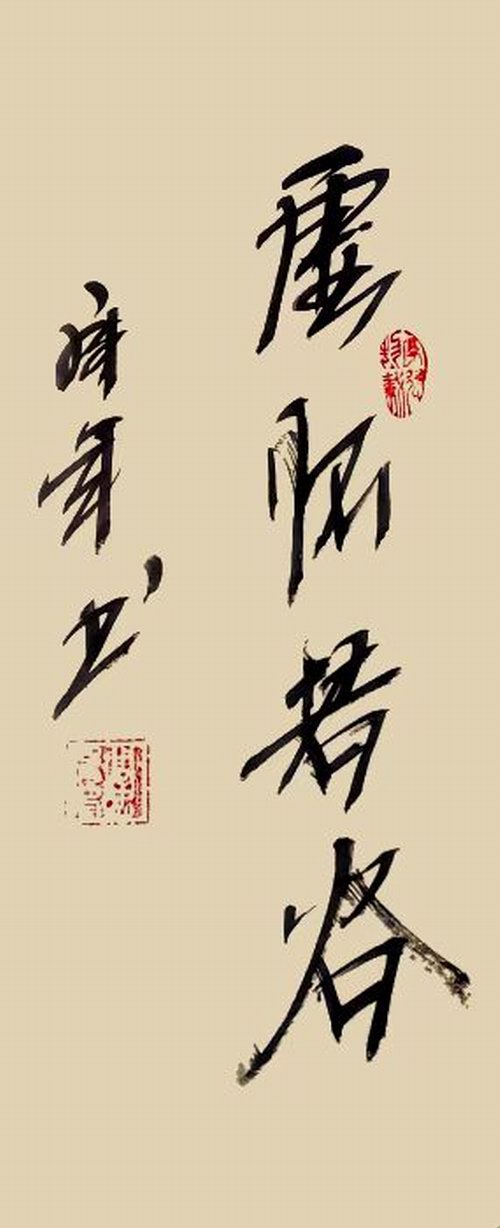 虚怀若谷
年书